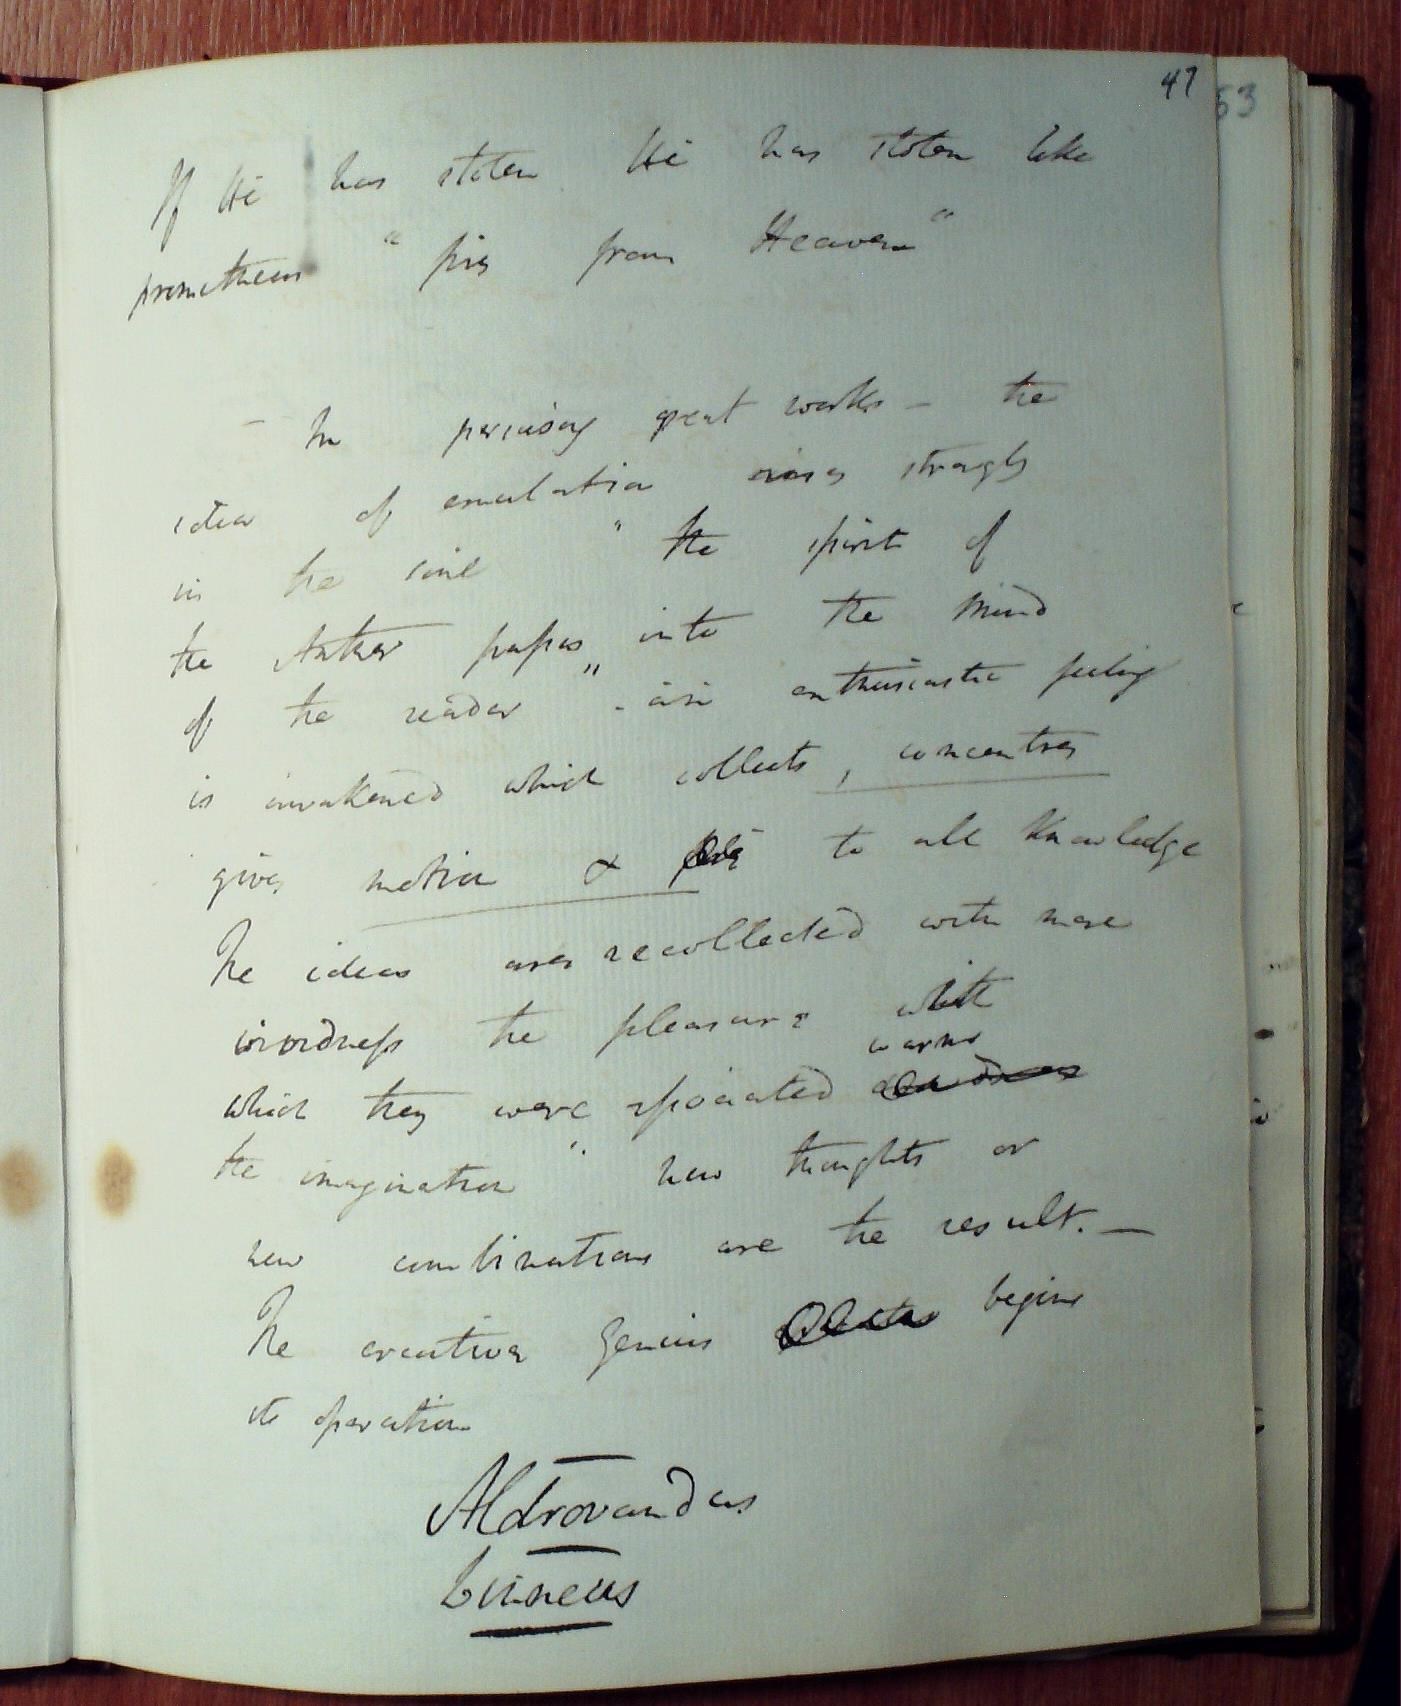 47
53
If He has stolen He has stolen like
prometheus "fire from Heaven"
- In perusing great works - the
idea of emulation rises strongly
in the soul " the spirit of
the Author passes into the Mind
of the reader" - an enthusiastic feeling
is awakened which collects, concentres
gives motion & to all Knowledge
The ideas are recollected with more
vividness the pleasure with
warms
which they were associated
the imagination" new thoughts or
new combinations are the result. -
The creative Genius begins
its operation
Aldrovandus
Linneus